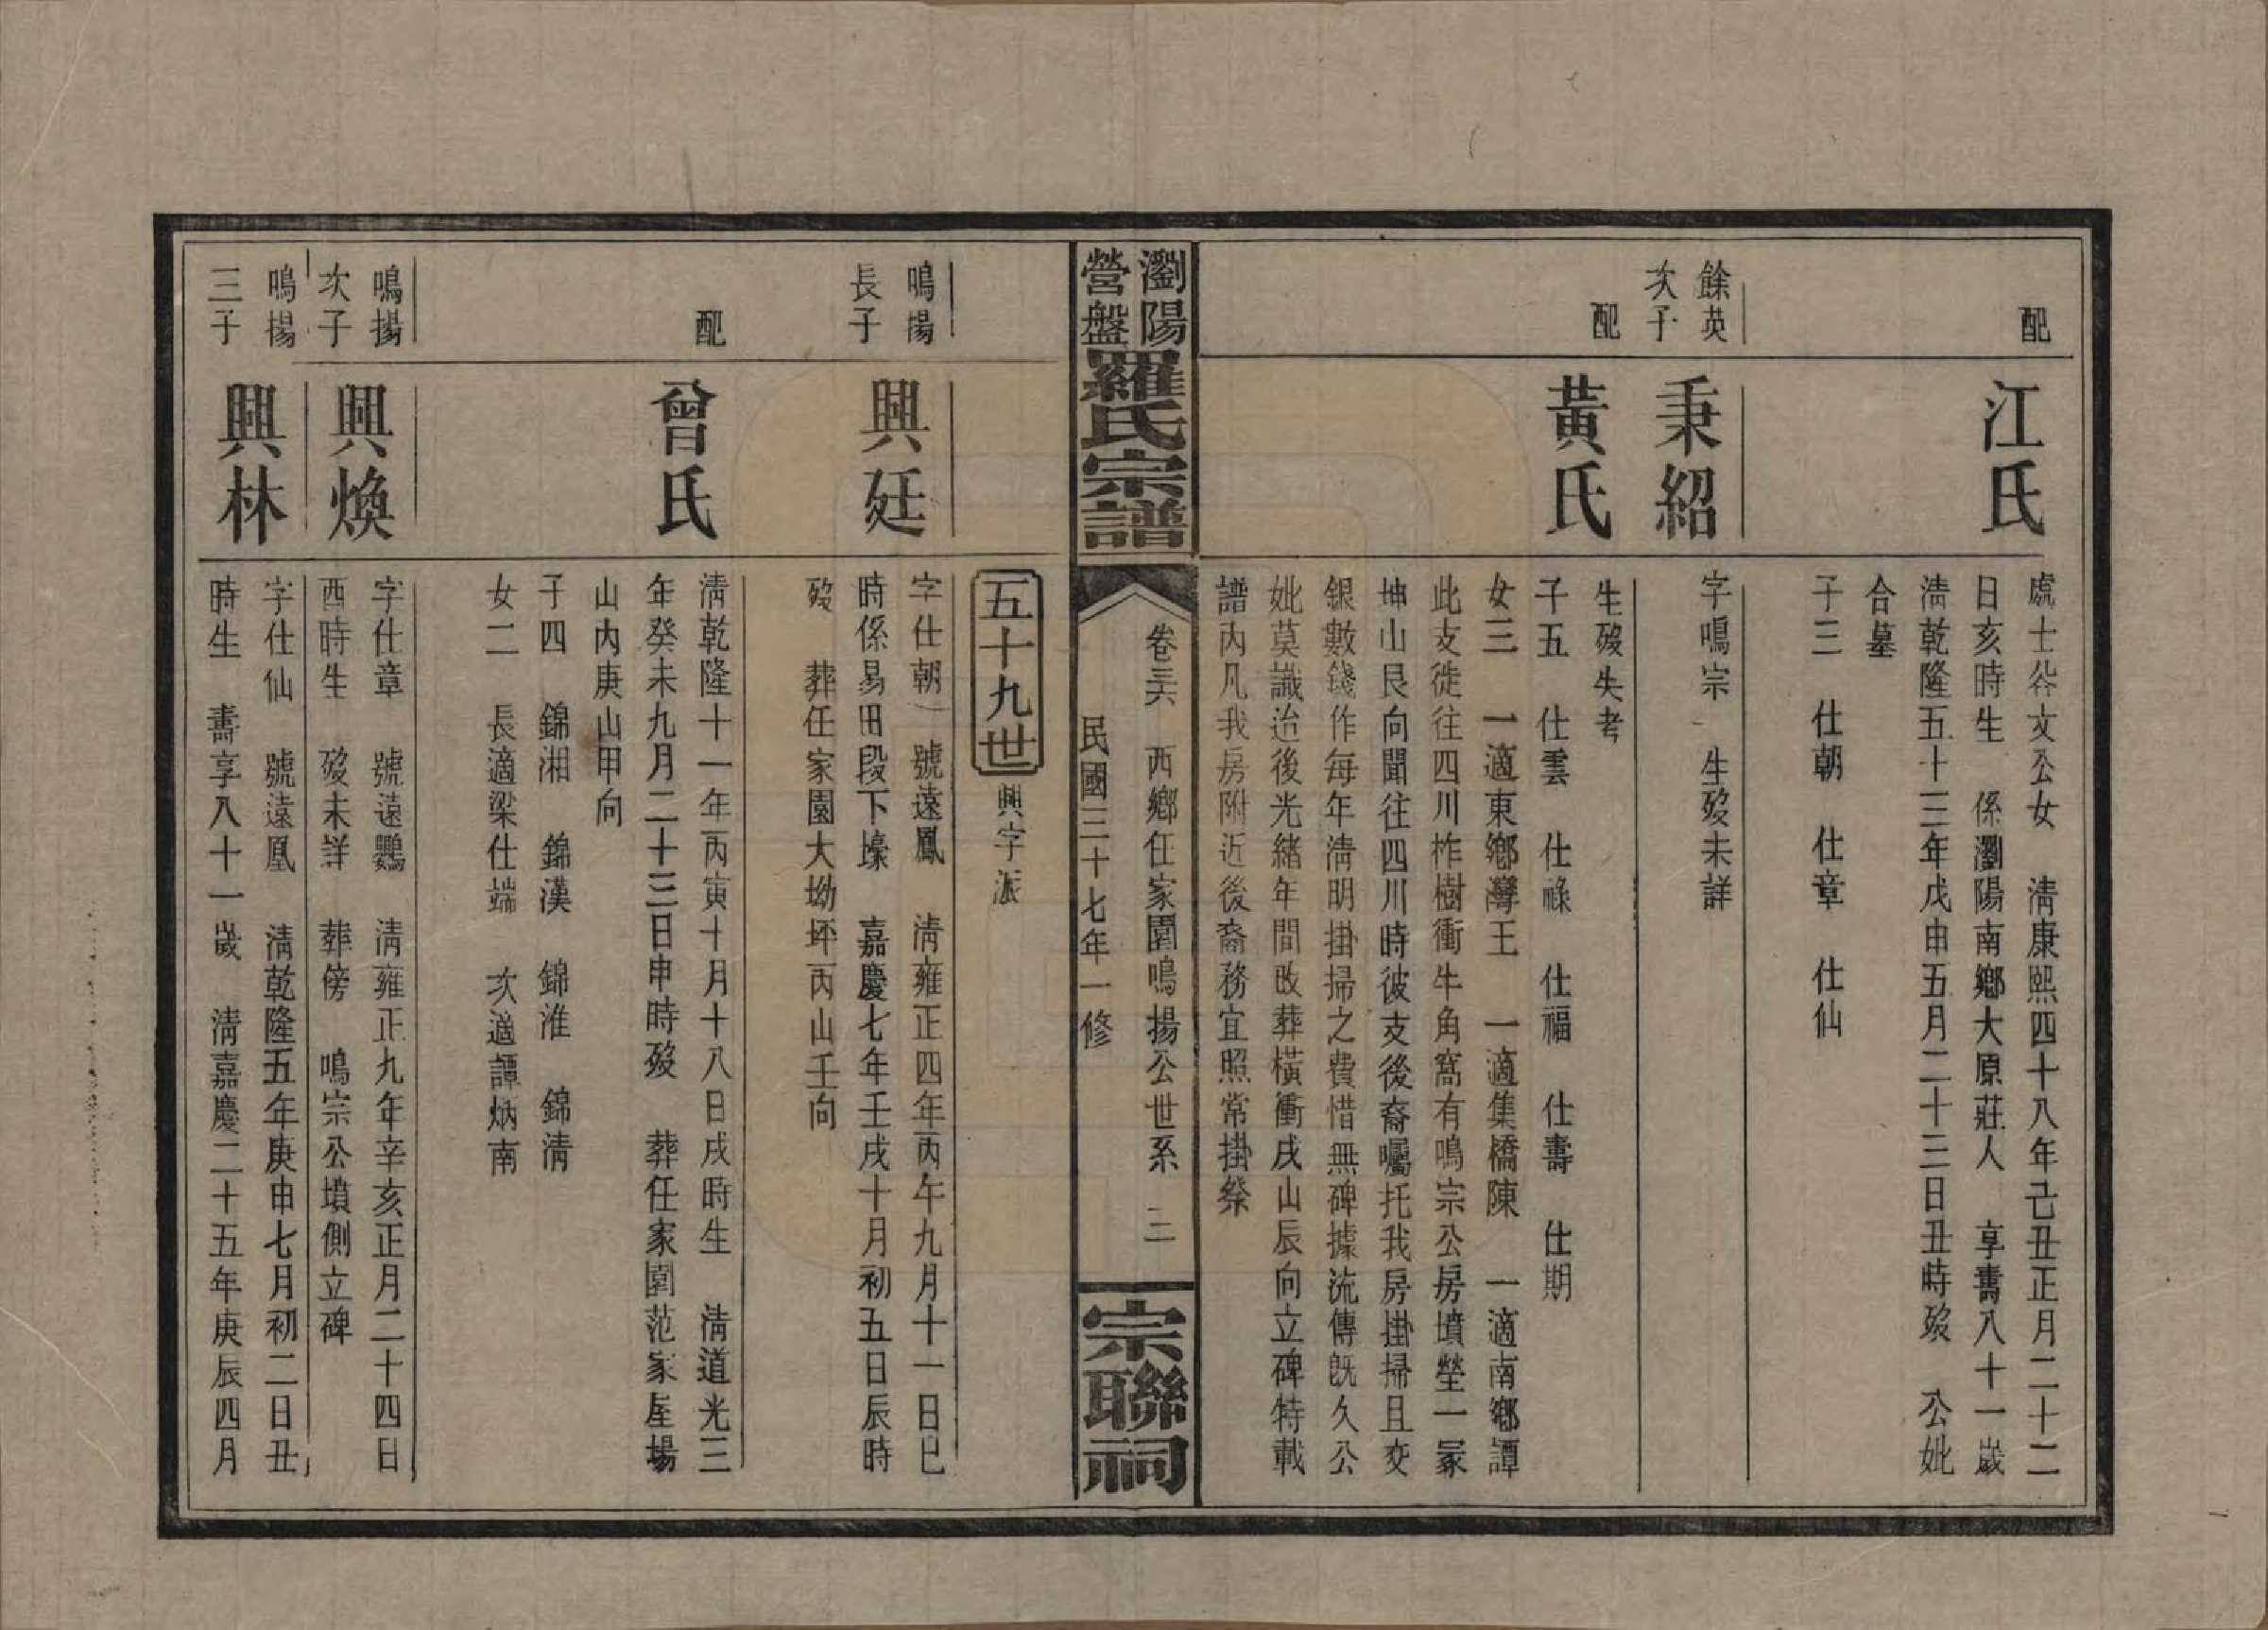 配
江氏
處士谷文公女　清康熙四十八年己丑正月二十二
日亥時生　係瀏陽南鄉大原莊人　享壽八十一歲
清乾隆五十三年戊申五月二十三日丑時歿　公妣
合墓
子三　仕朝　仕章　仕仙
餘英
次子
秉紹
字鳴宗　生歿未詳
配
黃氏
生歿失考
子五　仕雲　仕祿　仕福　仕壽　仕期
女三　一適東鄉灣王　一適集橋陳　一適南鄉譚
此支徙往四川柞樹衝牛角窩有鳴宗公房墳塋一冢
坤山艮向聞往四川時彼支後裔囑托我房掛掃且交
銀數錢作每年清明掛掃之費惜無碑據流傳既久公
妣莫識迨後光緒年間改葬橫衝戌山辰向立碑特載
譜內凡我房附近後裔務宜照常掛祭
瀏陽
營盤
羅氏宗譜
卷三六　西鄉任家園鳴揚公世系　三
民國三十七年一修
宗聯祠
五十九世
興字派
鳴揚
長子
興廷
字仕朝　號遠鳳　清雍正四年丙午九月十一日巳
時係易田段下壕　嘉慶七年壬戌十月初五日辰時
歿　葬任家園大坳坪丙山壬向
配
曾氏
清乾隆十一年丙寅十月十八日戌時生　清道光三
年癸未九月二十三日申時歿　葬任家園范家屋場
山內庚山甲向
子四　錦湘　錦漢　錦淮　錦清
女二　長適梁仕端　次適譚炳南
鳴揚
次子
興煥
字仕章　號遠鸚　清雍正九年辛亥正月二十四日
酉時生　歿未詳　葬傍　鳴宗公墳側立碑
鳴揚
三子
興林
字仕仙　號遠凰　清乾隆五年庚申七月初二日丑
時生　壽享八十一歲　清嘉慶二十五年庚辰四月